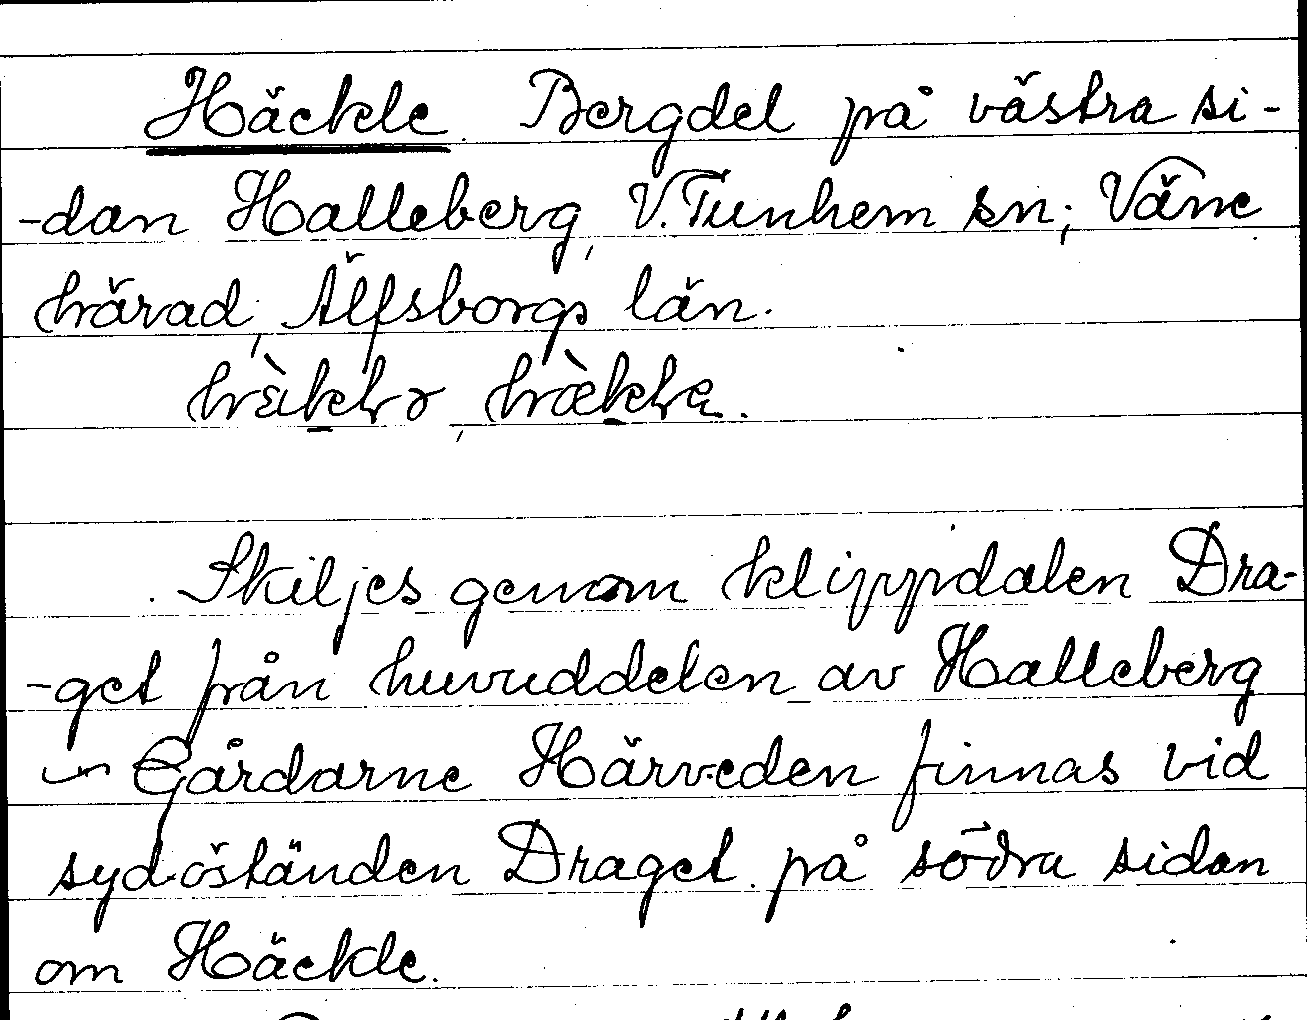 Häckle. Bergdel på västra si-
-dan Halleberg, V. Tunhem sn; Väne
härad, Älfsborgs län.
Skiljes genom klippdalen Dra-
-get från huvuddelen av Halleberg
Gårdarne Härveden finnas vid
sydöständen Draget på södra sidan
om Häckle.